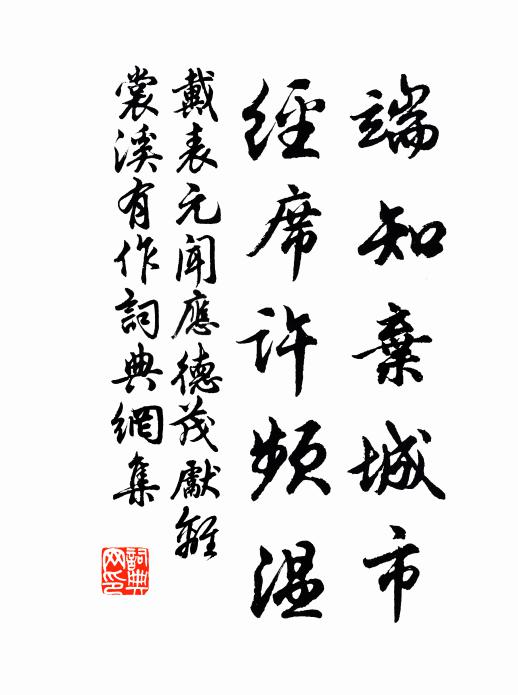 端知棄城市
經席許頻溫
戴表元聞應德茂獻離
裳溪有作詞典網集
詞典网印